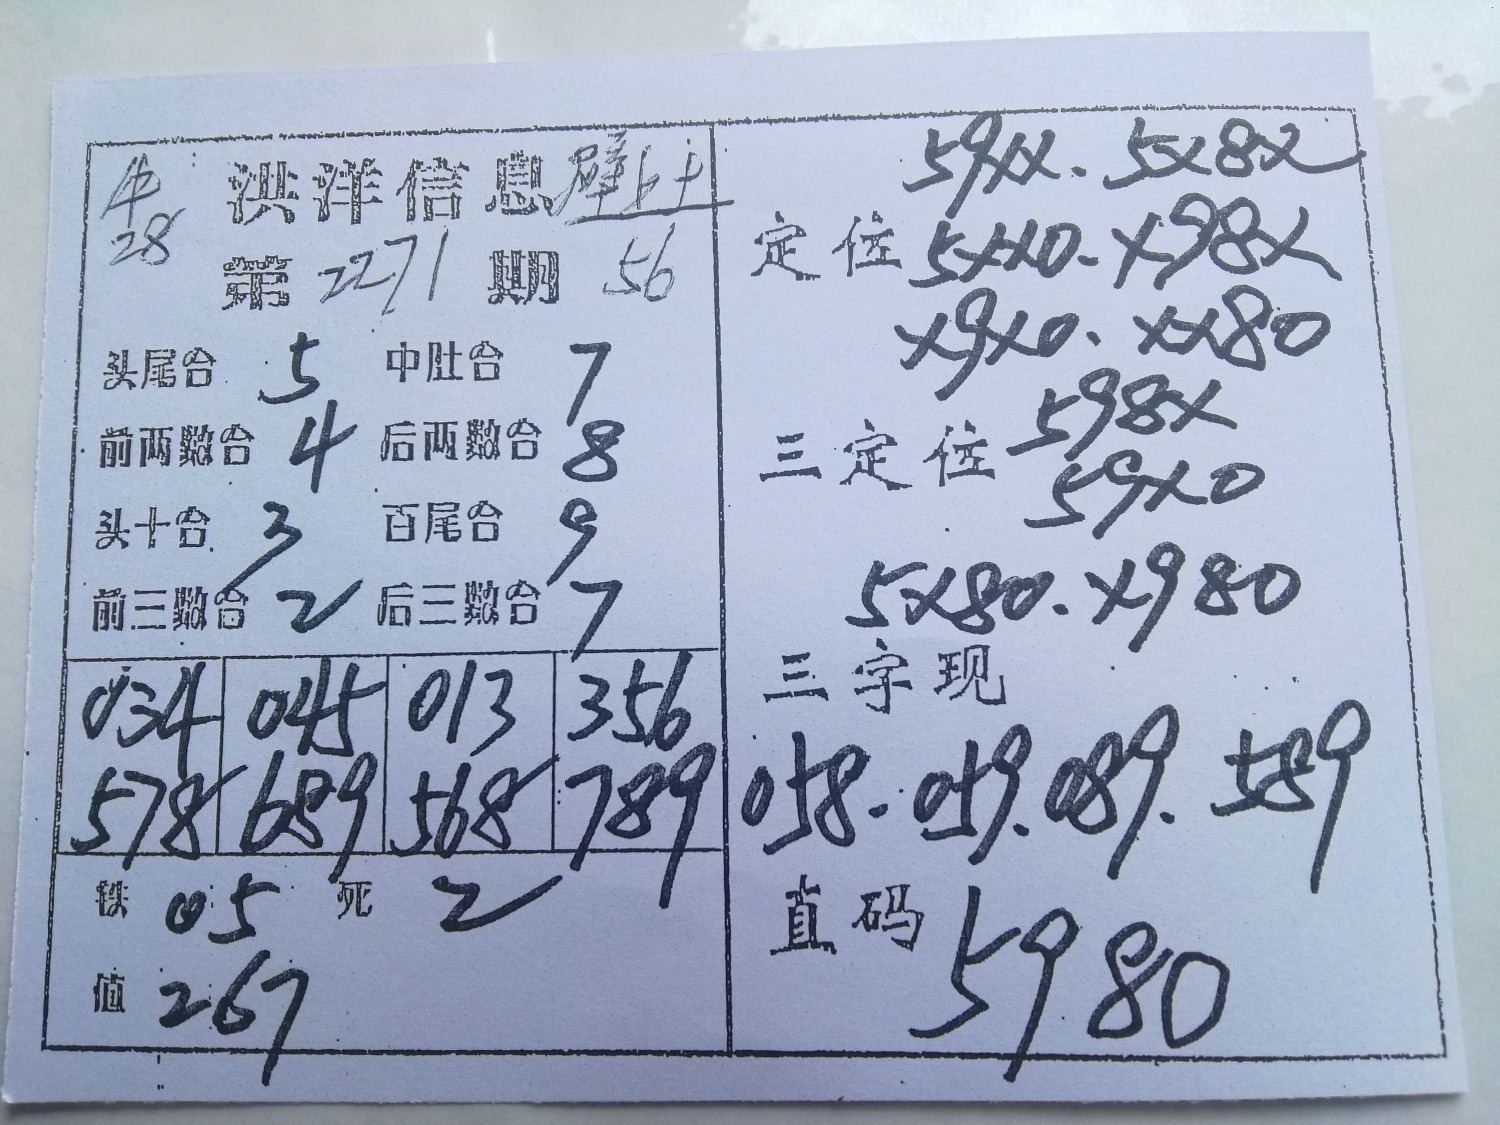 牛 洪洋信息 壁土
28 第2271期 56
头尾台 5 中肚台 7
前两数台 4 后两数台 8
头十台 3 百尾台 9
前三数台 2 后三数台 7
034 045 013 356
578 689 568 789
铁 05 死 2
值 267
59XX. 5X8X
定位 5XX0. X98X
X9X0. XX80
598X
三定位
59X0
5X80. X980
三字现
058. 059. 089. 589
直码
5980